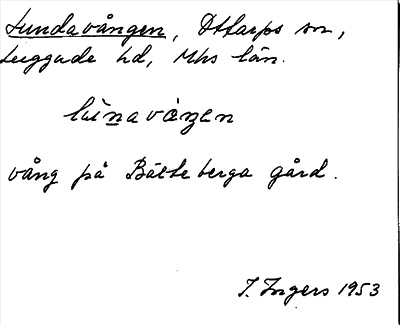 Lundavången, Ottarps sn,
Luggude hd, Mhs län.
lùnavàŋen
vång på Bälteberga gård.
I. Ingers 1953